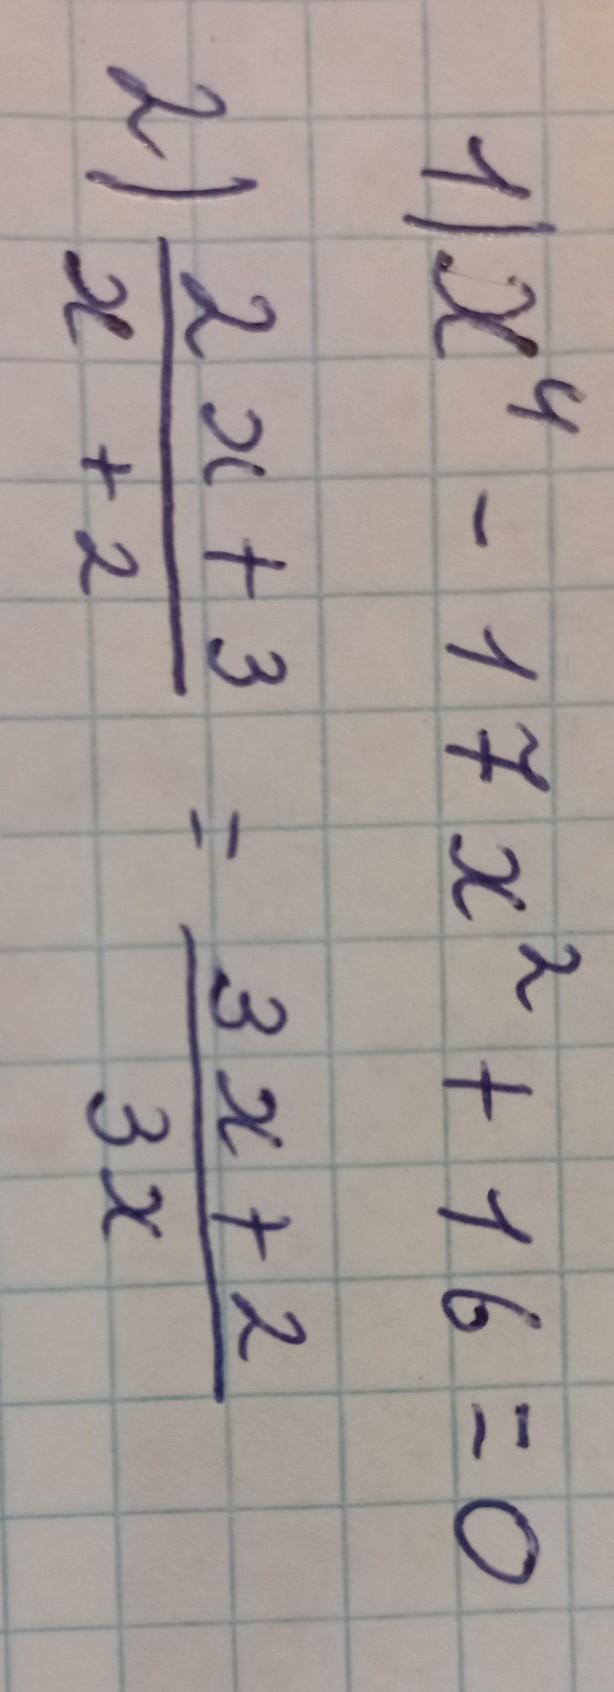 1) x⁴ - 17x² + 16 = 0
2) (2x + 3)/(x + 2) = (3x + 2)/(3x)